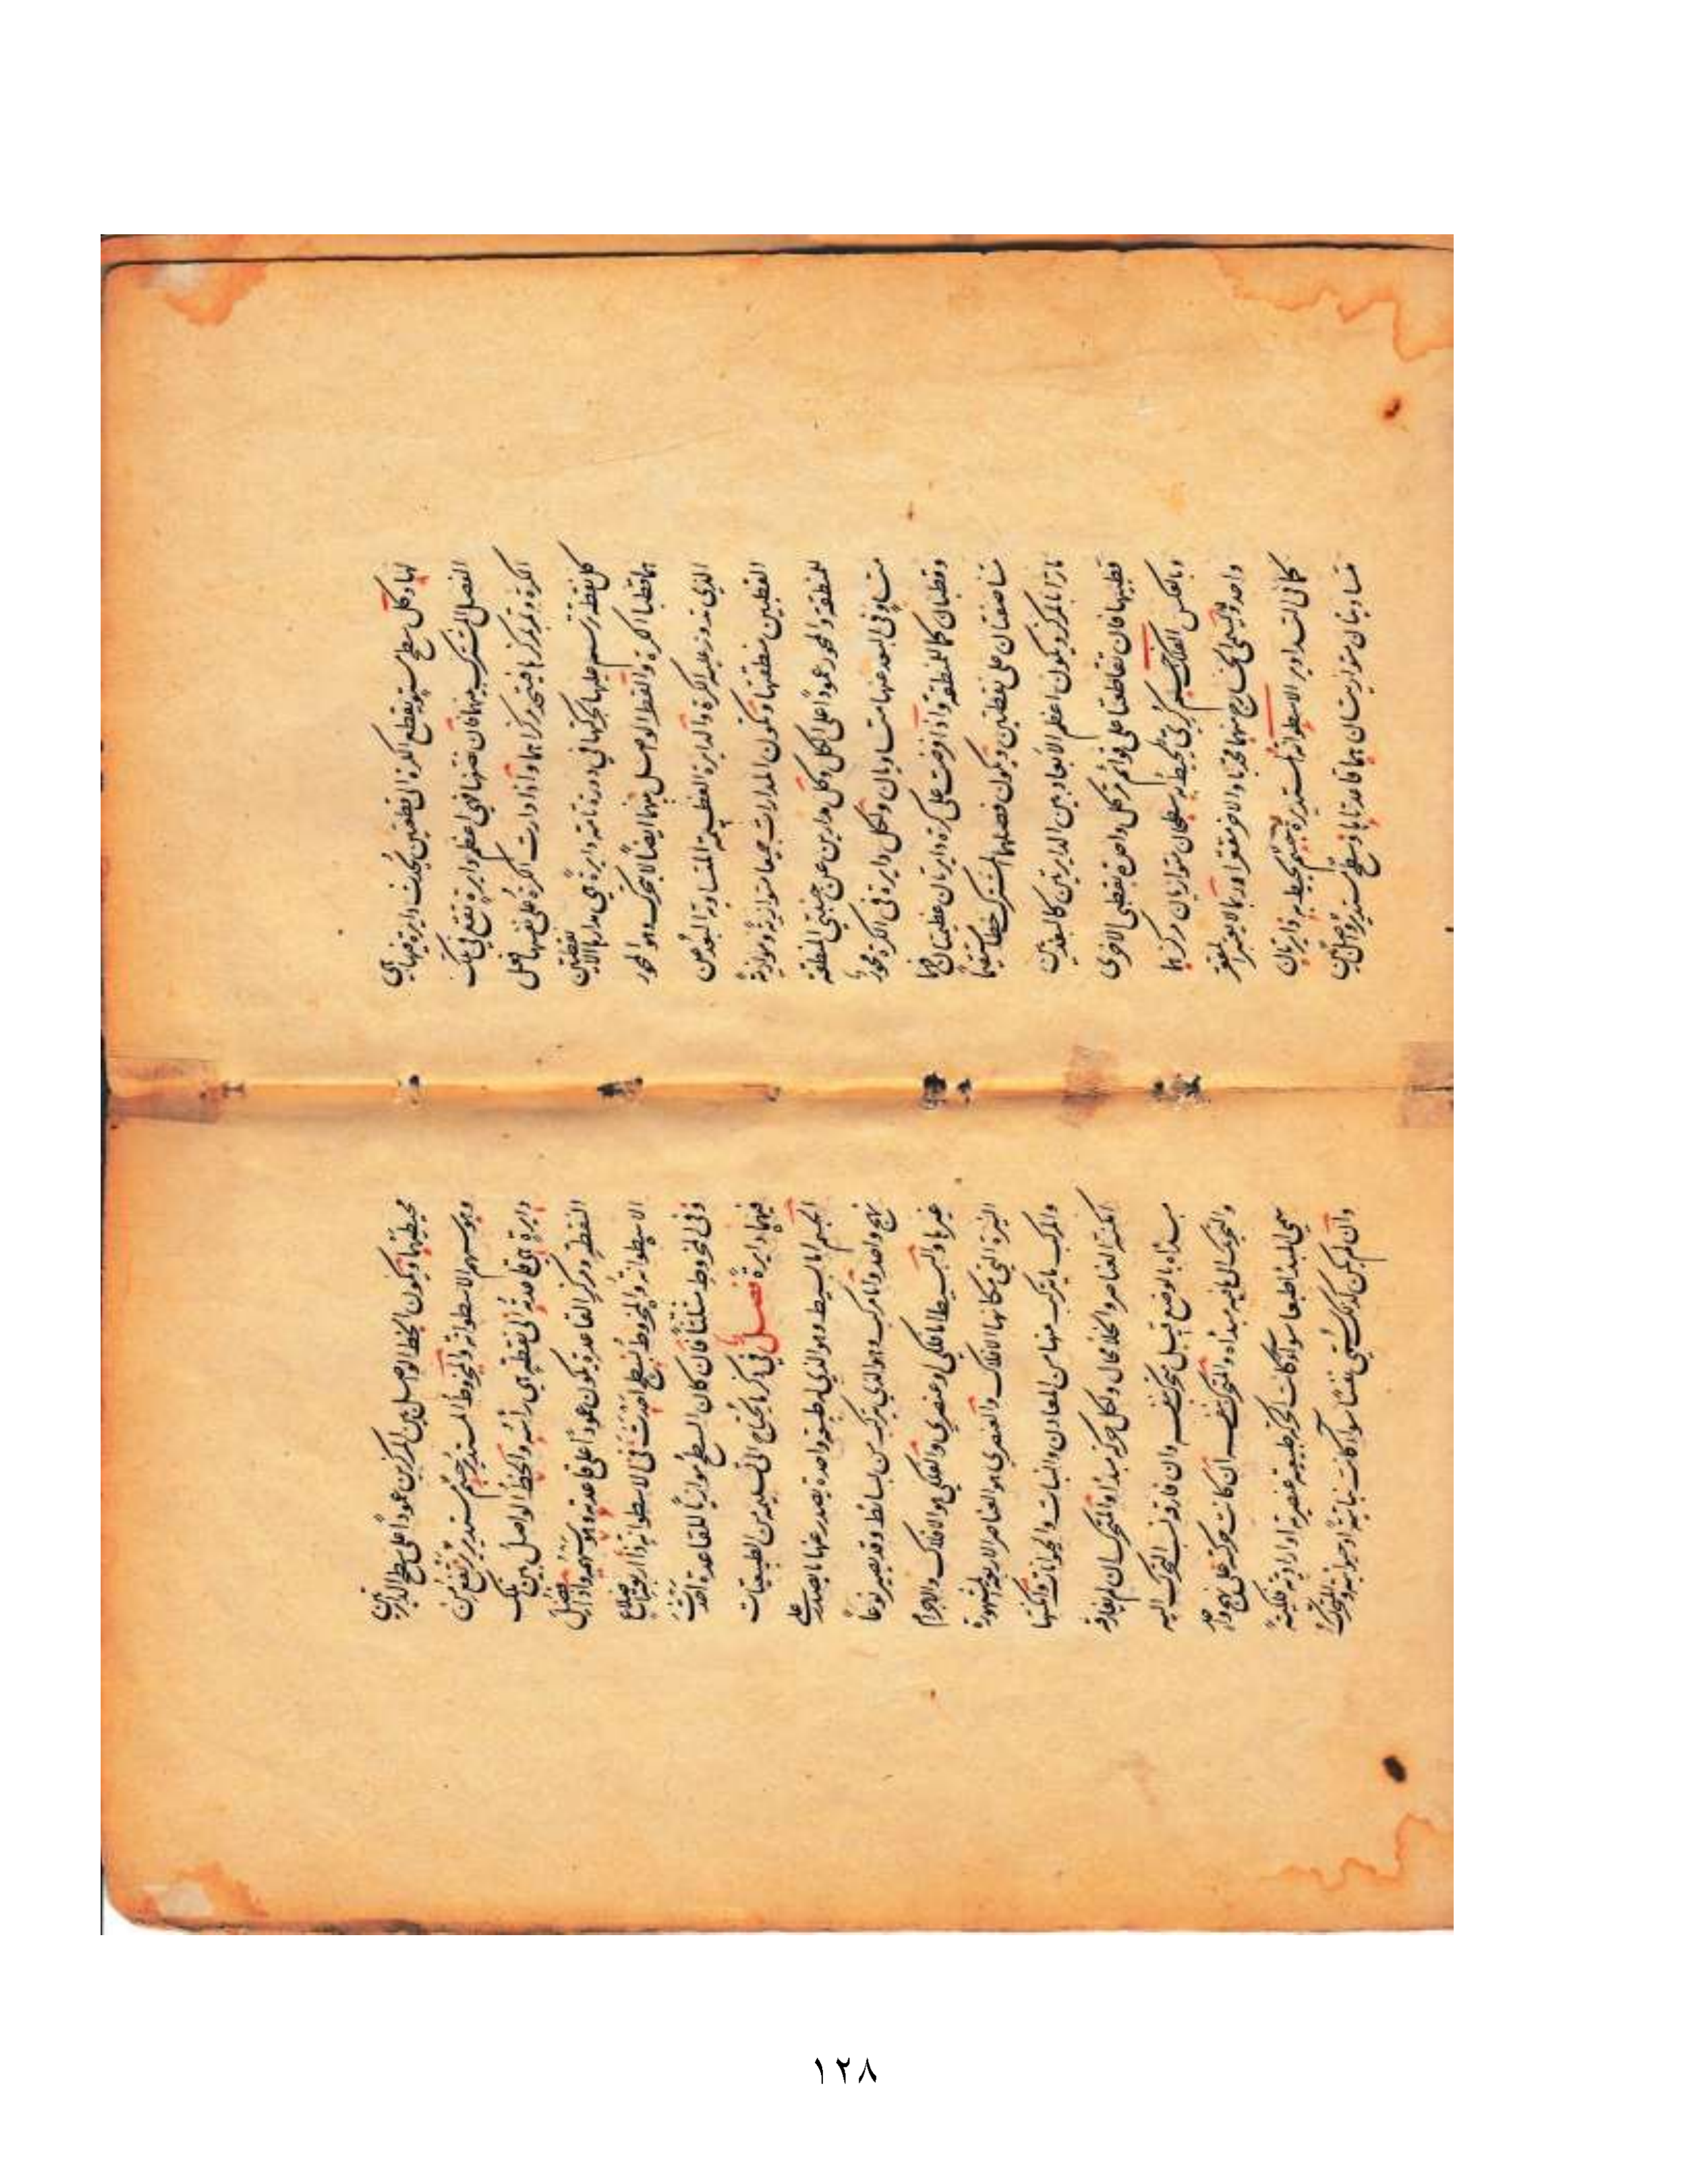 لها وكل سطح مستو يقطع الكرة الى قطعتين يحدث دايرة فيها هي
الفصل المشترك بينهما فان نصفتها فهي اعظم دايرة تقع في تلك
الكرة وتمر بمركزها فيتحد مركزاهما واذا دارت الكرة على نفسها فعلى
كل نقطة ترسم عليها بحركتها في دورة تامة دايرة هي مدارها الا نقطتين
هما قطبا الكرة والقطر الواصل بينهما ايضا لا يتحرك وهو المحور
الذي تدور عليه الكرة والدايرة العظيمة المتساوية البعد من
القطبين منطقتها وتكون المدارات جميعا متوازية وموازية
للمنطقة والمحور عمودا على الكل وكل مدارين عن جنبتي المنطقة
متساوي البعد عنها متساويان ولكل دايرة في الكرة محور
وقطبان كما للمنطقة واذا فرضت على كرة دايرتان عظيمتان فهما
متناصفتان على نقطتين ويكون فصلهما المشترك خطا مستقيما
مارا بالمركز ويكون اعظم الابعاد بين الدايرتين كالبعد بين
قطبيهما فان تقاطعتا على قوائم مر كل واحدة بقطبي الاخرى
وبالعكس الفلك جسم كري يحيط به سطحان متوازيان مركزهما
واحد ويسمى الخارج منهما محدبا والاخر مقعرا وربما لا يعتبر المقعر
كما في التداوير الاسطوانة المستديرة جسم يحيط به دايرتان
متساويتان متوازيتان هما قاعدتاها وسطح مستدير واصل بين
محيطيهما ويكون الخط الواصل بين المركزين عمودا على سطح الدايرتين
وهو سهم الاسطوانة والمخروط المستدير جسم مستدير يرتفع من
دايرة هي قاعدته الى نقطة هي رأسه والخط الواصل بين تلك
النقطة ومركز القاعدة ويكون عمودا على قاعدته هو سهمه واذا فصل
الاسطوانة والمخروط بسطح احدث في الاسطوانة ذا اربعة اضلاع
وفي المخروط مثلثا فان كان السطح موازيا للقاعدة احدث
فيهما دايرة فصل في ذكر ما يحتاج الى تسليمه من الطبيعيات
الجسم اما بسيط وهو الذي له طبيعة واحدة تصدر عنها ما يصدر على
نهج واحد واما مركب وهو الذي يتركب من بسائط وقد يصير نوعا
غيرها والبسيط اما فلكي او عنصري والفلكي هو الافلاك والاجرام
النيرة التي مكانها الافلاك والعنصري هو العناصر الاربعة المشهورة
والمركب ما يتركب منها من المعادن والنبات والحيوانات وامكنتها
امكنة العناصر والخلاء محال ولكل حركة مبدأ والمتحرك ان لم يفارقه
مبدأه بالوضع قيل متحرك بنفسه وان فارقه نسب التحرك اليه
والتحرك الى ما فيه مبدأه والمتحرك بنفسه ان كانت حركته على نهج واحد
سمي المبدأ طبعا سواء كانت الحركة طبيعية عنصرية او ارادية فلكية
وان لم يكن كذلك سمي نفسا سواء كانت نباتية او حيوانية وحركة المتحرك
١٢٨